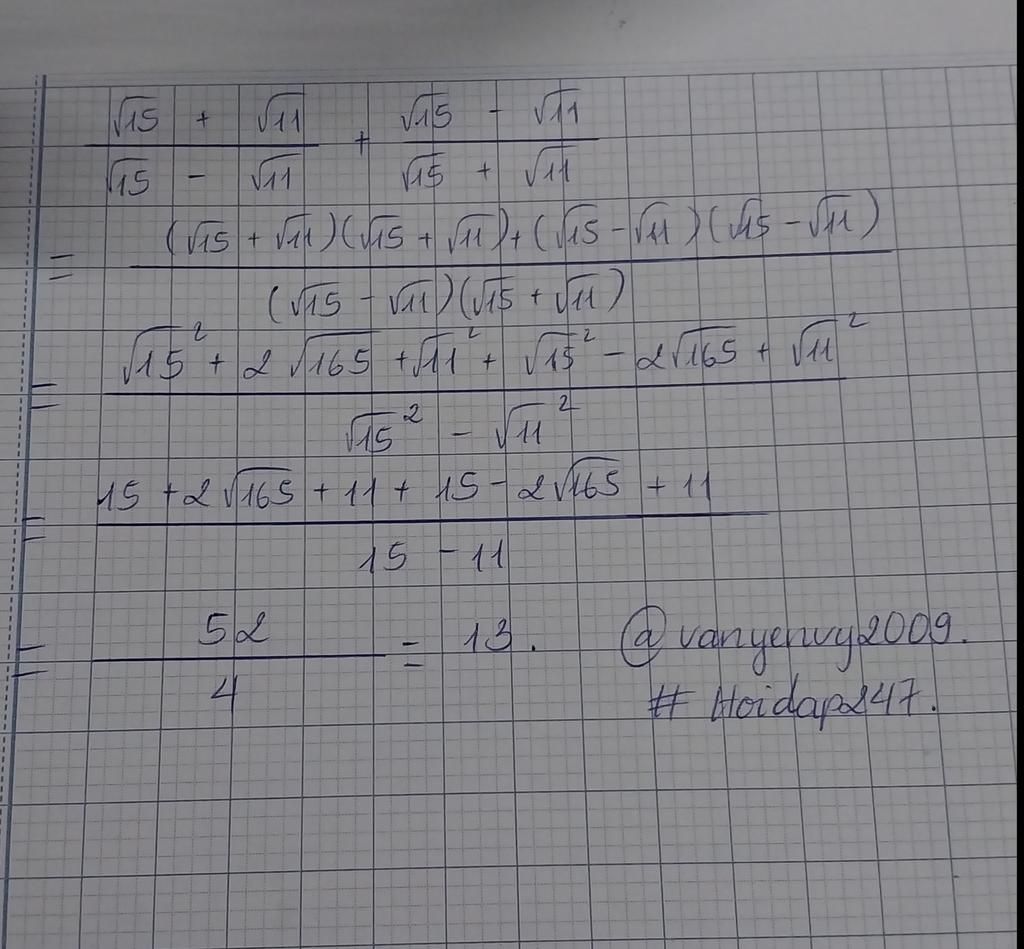 (√15 + √11)/(√15 - √11) + (√15 - √11)/(√15 + √11)
= ((√15 + √11)(√15 + √11) + (√15 - √11)(√15 - √11))/((√15 - √11)(√15 + √11))
= (√15² + 2√165 + √11² + √15² - 2√165 + √11²)/(√15² - √11²)
= (15 + 2√165 + 11 + 15 - 2√165 + 11)/(15 - 11)
= 52/4 = 13. @vanyenvy2009.
# Hoidap247.